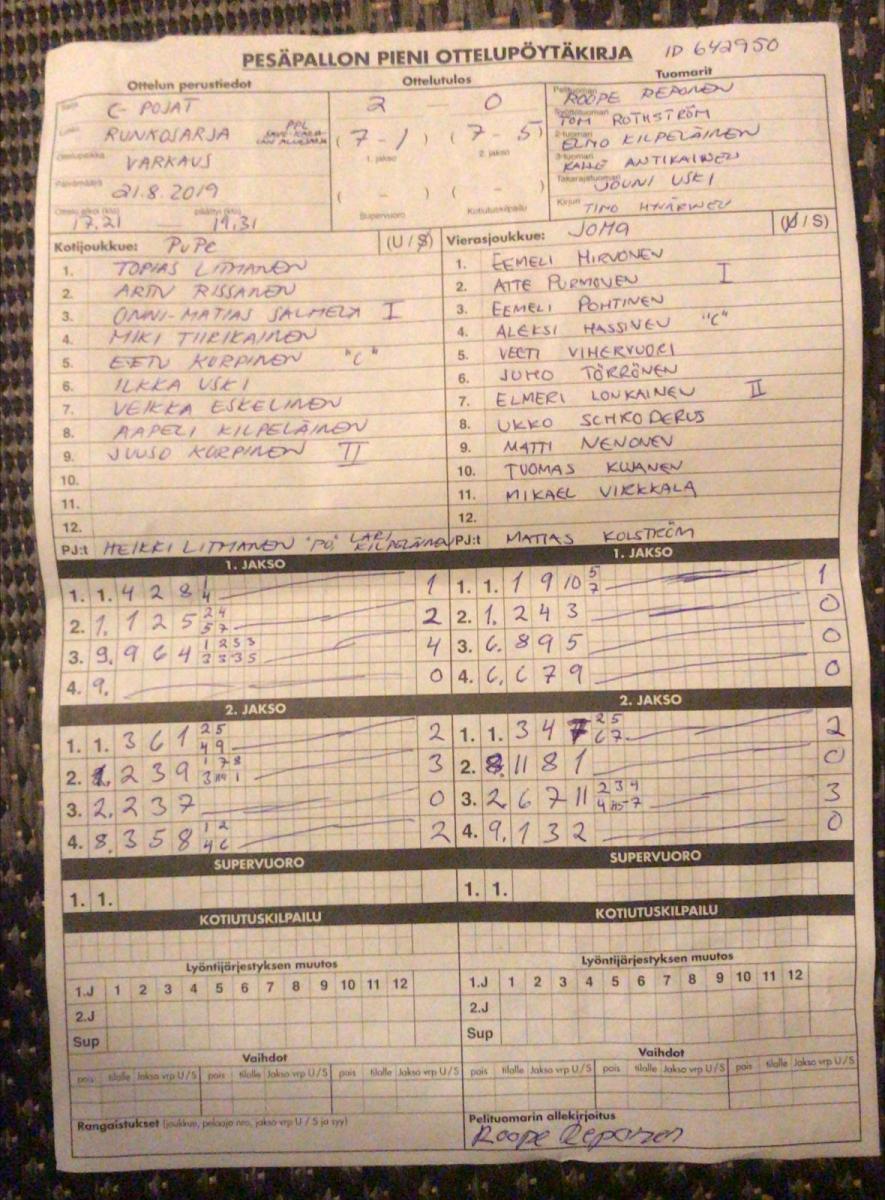 PESÄPALLON PIENI OTTELUPÖYTÄKIRJA ID 642950
Ottelun perustiedot Ottelutulos Tuomarit
C-POJAT 2 0
RUNKOSARJA PPL (7-1) (7-5)
1. jakso 2. jakso
VARKAUS
21.8.2019 ( - ) ( - )
17.21 — 19.31 Supervuoro Kotiutuskilpailu
ROOPE REPONEN
TOM ROTHSTRÖM
ELMO KILPELÄINEN
KALLE ANTIKAINEN
JOUNI USKI
Kirjuri TIMO
Kotijoukkue: PuPe (U / S) Vierasjoukkue: JOMA (U / S)
1. TOPIAS LITMANEN
2. ARTTU RISSANEN
3. ONNI-MATIAS SALMELA I
4. MIKI TIIRIKAINEN
5. EETU KORPINEN "C"
6. ILKKA USKI
7. VEIKKA ESKELINEN
8. AAPELI KILPELÄINEN
9. JUUSO KORPINEN II
10.
11.
12.
PJ:t HEIKKI LITMANEN "PJ", LARI KILPELÄINEN
1. EEMELI HIRVONEN
2. ATTE PURMONEN I
3. EEMELI POHTINEN
4. ALEKSI HASSINEN "C"
5. VEETI VIHERVUORI
6. JUHO TÖRRÖNEN
7. ELMERI LONKAINEN II
8. UKKO SCHRODERUS
9. MATTI NENONEN
10. TUOMAS KUJANEN
11. MIKAEL VIRKKALA
12.
PJ:t MATIAS KOLSTRÖM
1. JAKSO 1. JAKSO
1. 1. 4 2 8 1 4 1 1. 1. 1 9 10 5 7 1
2. 1. 1 2 5 2 4 5 7 2 2. 1. 2 4 3 0
3. 9. 9 6 4 1 2 3 3 3 3 3 5 4 3. 6. 8 9 5 0
4. 9. 0 4. 6. 6 7 9 0
2. JAKSO 2. JAKSO
1. 1. 3 6 1 2 5 4 9 2 1. 1. 3 4 7 2 5 6 7 2
2. 1. 2 3 9 1 7 8 3 1 3 2. 8. 11 8 1 0
3. 2. 2 3 7 0 3. 2. 6 7 11 2 3 4 4 5 7 3
4. 8. 3 5 8 1 2 4 6 2 4. 9. 1 3 2 0
SUPERVUORO SUPERVUORO
1. 1. 1. 1.
KOTIUTUSKILPAILU KOTIUTUSKILPAILU
Lyöntijärjestyksen muutos Lyöntijärjestyksen muutos
1.J 1 2 3 4 5 6 7 8 9 10 11 12 1.J 1 2 3 4 5 6 7 8 9 10 11 12
2.J 2.J
Sup Sup
Vaihdot Vaihdot
pois tilalle Jakso vrp U / S pois tilalle Jakso vrp U / S pois tilalle Jakso vrp U / S pois tilalle Jakso vrp U / S pois tilalle Jakso vrp U / S pois tilalle Jakso vrp U / S
Rangaistukset (joukkue, pelaaja nro, jakso-vrp U / S ja syy) Pelituomarin allekirjoitus
Roope Reponen